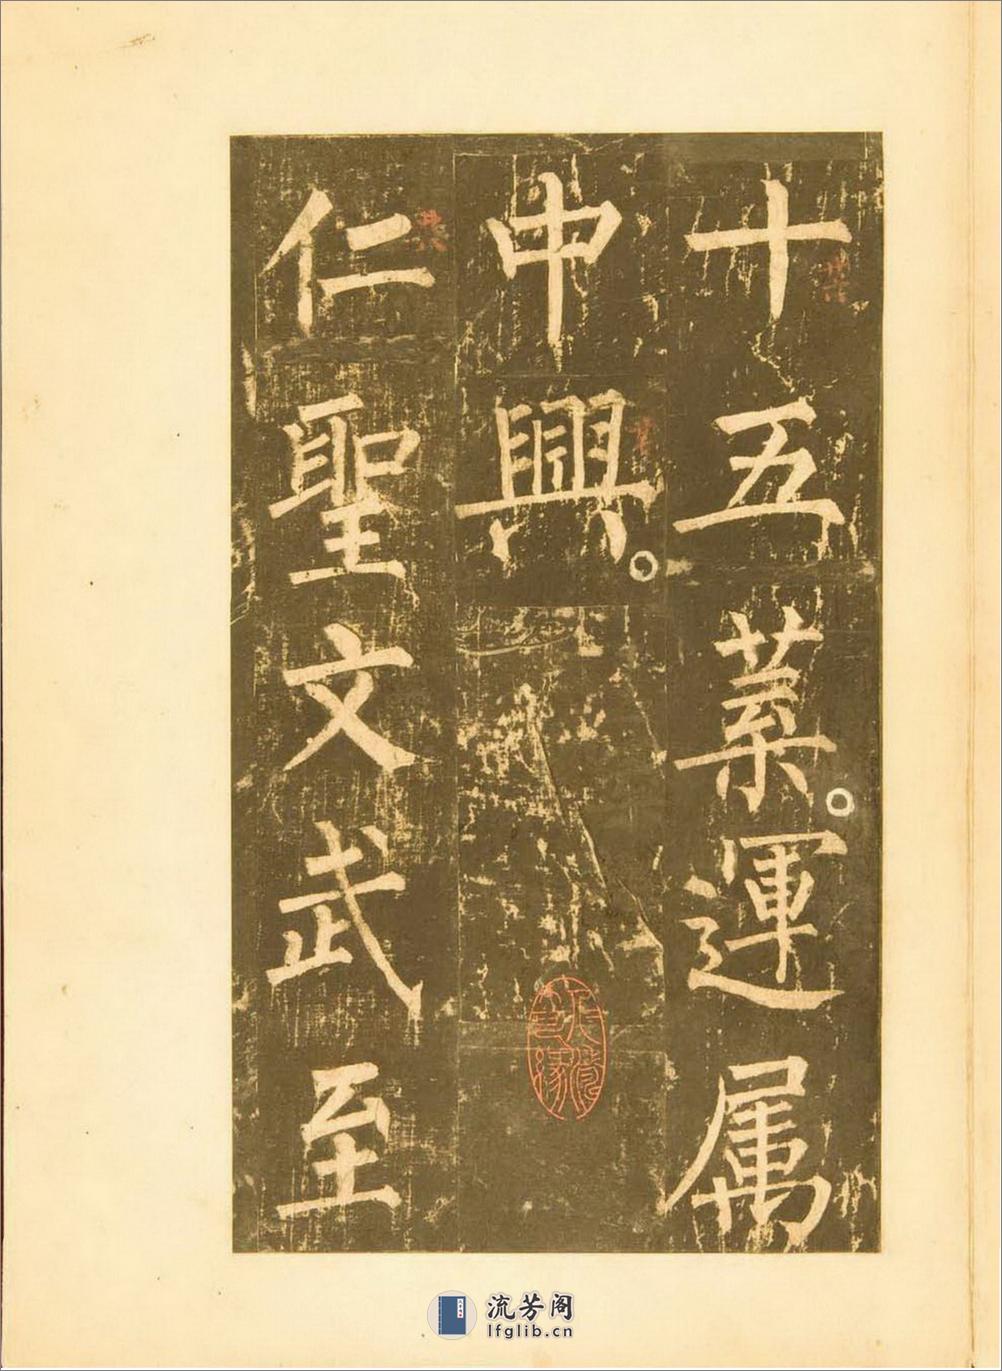 十五葉運属
中興
仁聖文武至
流芳阁
lfglib.cn